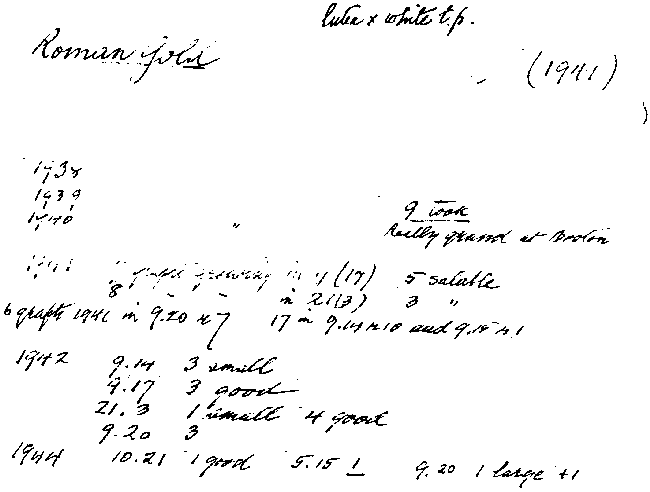 lutea x white t.p.
Roman Gold
(1941)
1938
1939
1940 " 9 took
Really grand at Boston
1941 " grafts growing in 4 (17) 5 salable
8 in 21(3) 3 "
6 grafts 1941 in 9.20 n 7 17 in 9.14 n 10 and 9.15 n 1
1942 9.14 3 small
9.17 3 good
21.3 1 small 4 good
9.20 3
1944 10.21 1 good 5.15 1 9.20 1 large +1